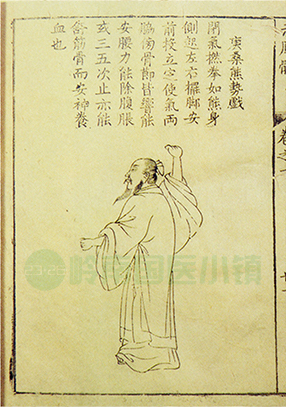 庚桑熊勢戲
閉氣撚拳如熊身
側起左右擺脚安
前投立定使氣兩
脇傍骨節皆響能
安腰力能除腹脹
或三五次止亦能
舒筋骨而安神養
血也
国医小镇